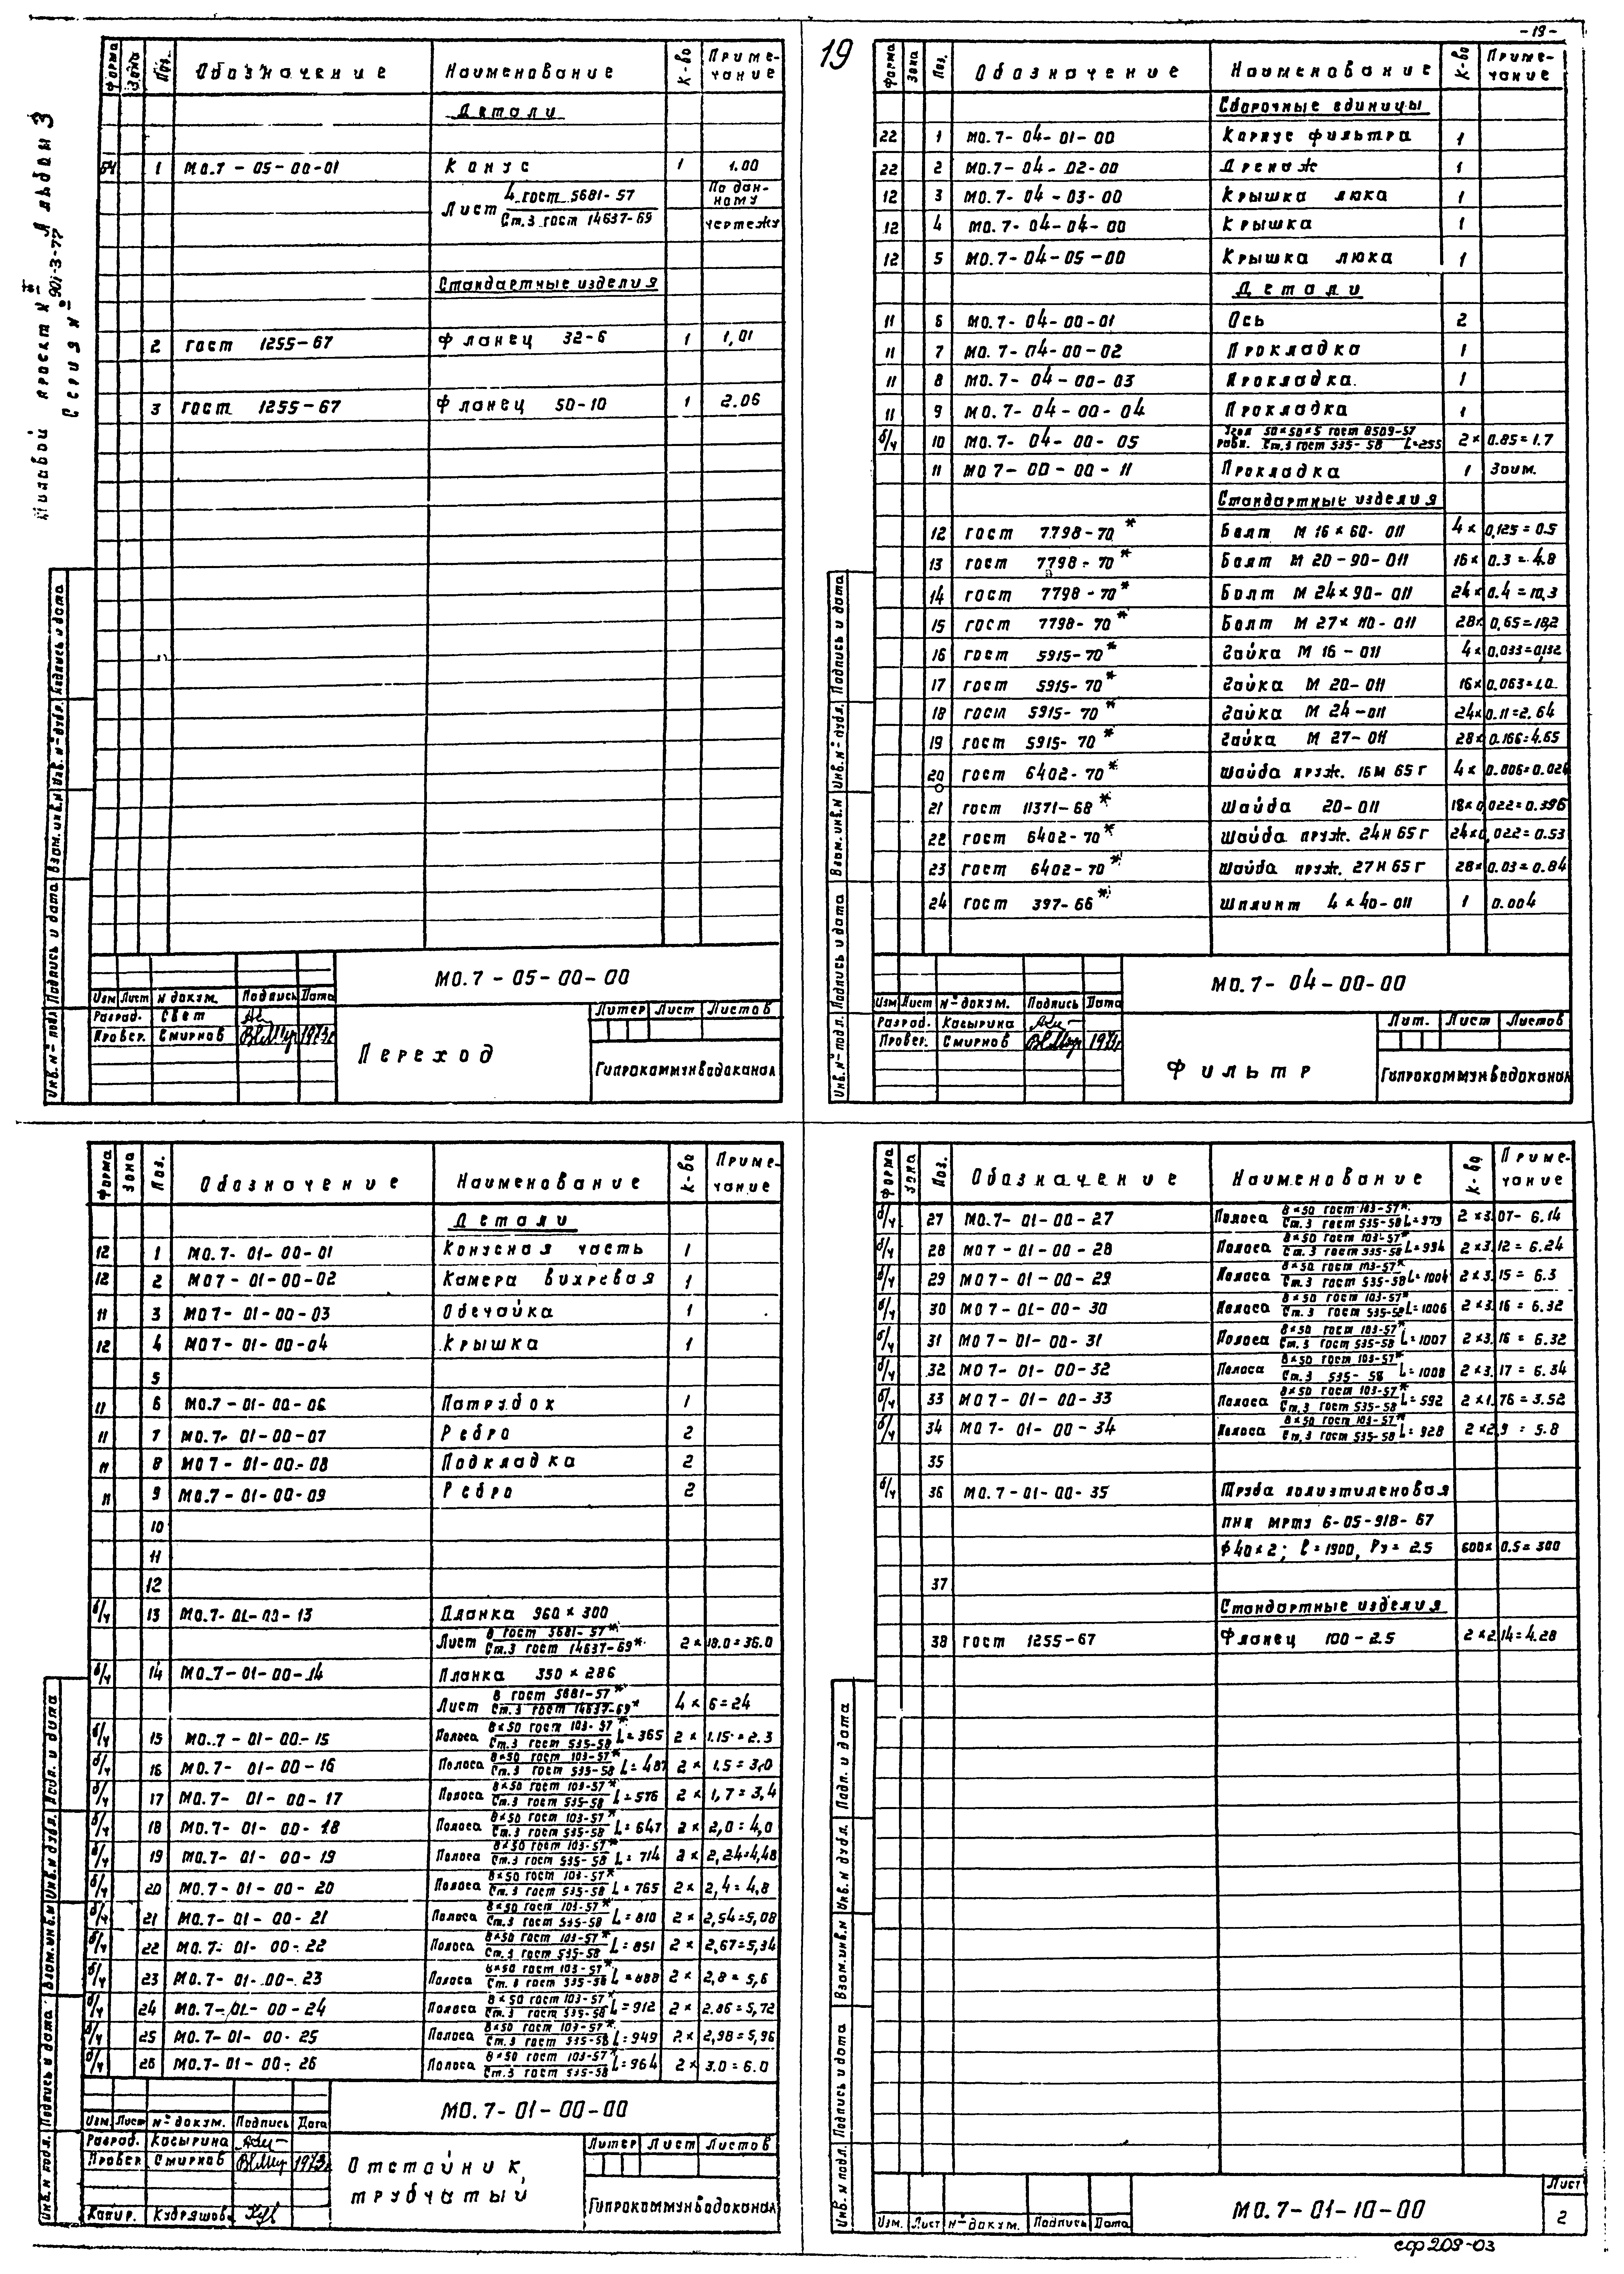 - 19 -
19
Типовой проект № 901-3-77 Альбом 3
Серия №
Форма Зона Поз. Обозначение Наименование К-во Примечание
Детали
БЧ 1 М0.7-05-00-01 Конус 1 1.00
Лист 4 гост 5681-57 По данному
Ст.3 гост 14637-69 чертежу
Стандартные изделия
2 гост 1255-67 Фланец 32-6 1 1,01
3 гост 1255-67 Фланец 50-10 1 2.06
Инв. № подл. Подпись и дата Взам. инв. № Инв. № дубл. Подпись и дата
М0.7-05-00-00
Изм Лист № докум. Подпись Дата
Разраб. Свет
Провер. Смирнов 1973г
Переход
Литер Лист Листов
Гипрокоммунводоканал
Форма Зона Поз. Обозначение Наименование К-во Примечание
Сборочные единицы
22 1 М0.7-04-01-00 Корпус фильтра 1
22 2 М0.7-04-02-00 Дренаж 1
12 3 М0.7-04-03-00 Крышка люка 1
12 4 М0.7-04-04-00 Крышка 1
12 5 М0.7-04-05-00 Крышка люка 1
Детали
11 6 М0.7-04-00-01 Ось 2
11 7 М0.7-04-00-02 Прокладка 1
11 8 М0.7-04-00-03 Прокладка 1
11 9 М0.7-04-00-04 Прокладка 1
б/ч 10 М0.7-04-00-05 Угол 50×50×5 гост 8509-57 2× 0.85=1.7
равн. Ст.3 гост 535-58 L=255
11 М0 7-00-00-11 Прокладка 1 Заим.
Стандартные изделия
12 гост 7798-70* Болт М 16×60-011 4× 0,125=0.5
13 гост 7798-70* Болт М 20-90-011 16× 0.3=4.8
14 гост 7798-70* Болт М 24×90-011 24× 0.4=10,3
15 гост 7798-70* Болт М 27×110-011 28× 0,65=18,2
16 гост 5915-70* Гайка М 16-011 4× 0.033=0,132
17 гост 5915-70* Гайка М 20-011 16× 0.063=1.0
18 гост 5915-70* Гайка М 24-011 24× 0.11=2.64
19 гост 5915-70* Гайка М 27-011 28× 0.166=4.65
20 гост 6402-70* Шайба пруж. 16Н 65Г 4× 0.006=0.024
21 гост 11371-68* Шайба 20-011 18× 0,022=0.396
22 гост 6402-70* Шайба пруж. 24Н 65Г 24× 0,022=0.53
23 гост 6402-70* Шайба пруж. 27Н 65Г 28× 0.03=0.84
24 гост 397-66* Шплинт 4×40-011 1 0.004
Инв. № подл. Подпись и дата Взам. инв. № Инв. № дубл. Подпись и дата
М0.7-04-00-00
Изм Лист № докум. Подпись Дата
Разраб. Касырина
Провер. Смирнов
Фильтр
Лит. Лист Листов
Гипрокоммунводоканал
Форма Зона Поз. Обозначение Наименование К-во Примечание
Детали
12 1 М0.7-01-00-01 Конусная часть 1
12 2 М0 7-01-00-02 Камера вихревая 1
11 3 М0 7-01-00-03 Обечайка 1
12 4 М0 7-01-00-04 Крышка 1
5
11 6 М0.7-01-00-06 Патрубок 1
11 7 М0.7-01-00-07 Ребро 2
11 8 М0 7-01-00-08 Подкладка 2
11 9 М0.7-01-00-09 Ребро 2
10
11
12
б/ч 13 М0.7-01-00-13 Планка 960×300
Лист 8 гост 5681-57* 2× 18.0=36.0
Ст.3 гост 14637-69*
б/ч 14 М0.7-01-00-14 Планка 350×286
Лист 8 гост 5681-57* 4× 6=24
Ст.3 гост 14637-69*
б/ч 15 М0.7-01-00-15 Полоса 8×50 гост 103-57* Ст.3 гост 535-58 L=365 2× 1.15=2.3
б/ч 16 М0.7-01-00-16 Полоса 8×50 гост 103-57* Ст.3 гост 535-58 L=487 2× 1.5=3,0
б/ч 17 М0.7-01-00-17 Полоса 8×50 гост 103-57* Ст.3 гост 535-58 L=576 2× 1,7=3,4
б/ч 18 М0.7-01-00-18 Полоса 8×50 гост 103-57* Ст.3 гост 535-58 L=647 2× 2,0=4,0
б/ч 19 М0.7-01-00-19 Полоса 8×50 гост 103-57* Ст.3 гост 535-58 L=714 2× 2,24=4,48
б/ч 20 М0.7-01-00-20 Полоса 8×50 гост 103-57* Ст.3 гост 535-58 L=765 2× 2,4=4,8
б/ч 21 М0.7-01-00-21 Полоса 8×50 гост 103-57* Ст.3 гост 535-58 L=810 2× 2,54=5,08
б/ч 22 М0.7-01-00-22 Полоса 8×50 гост 103-57* Ст.3 гост 535-58 L=851 2× 2,67=5,34
б/ч 23 М0.7-01-00-23 Полоса 8×50 гост 103-57* Ст.3 гост 535-58 L=888 2× 2,8=5,6
б/ч 24 М0.7-01-00-24 Полоса 8×50 гост 103-57* Ст.3 гост 535-58 L=912 2× 2.86=5,72
б/ч 25 М0.7-01-00-25 Полоса 8×50 гост 103-57* Ст.3 гост 535-58 L=949 2× 2,98=5,96
б/ч 26 М0.7-01-00-26 Полоса 8×50 гост 103-57* Ст.3 гост 535-58 L=964 2× 3.0=6.0
Инв. № подл. Подпись и дата Взам. инв. № Инв. № дубл. Подп. и дата
М0.7-01-00-00
Изм. Лист № докум. Подпись Дата
Разраб. Касырина
Провер Смирнов 1973г
Копир. Кудряшова
Отстойник,
трубчатый
Литер Лист Листов
Гипрокоммунводоканал
Форма Зона Поз. Обозначение Наименование К-во Примечание
б/ч 27 М0.7-01-00-27 Полоса 8×50 гост 103-57* Ст.3 гост 535-58 L=979 2×3.07-6.14
б/ч 28 М0 7-01-00-28 Полоса 8×50 гост 103-57* Ст.3 гост 535-58 L=994 2×3.12=6.24
б/ч 29 М0 7-01-00-29 Полоса 8×50 гост 103-57* Ст.3 гост 535-58 L=1004 2×3.15=6.3
б/ч 30 М0 7-01-00-30 Полоса 8×50 гост 103-57* Ст.3 гост 535-58 L=1006 2×3.16=6.32
б/ч 31 М0 7-01-00-31 Полоса 8×50 гост 103-57* Ст.3 гост 535-58 L=1007 2×3.16=6.32
б/ч 32 М0 7-01-00-32 Полоса 8×50 гост 103-57* Ст.3 535-58 L=1008 2×3.17=6.34
б/ч 33 М0 7-01-00-33 Полоса 8×50 гост 103-57* Ст.3 гост 535-58 L=592 2×1.76=3.52
б/ч 34 М0 7-01-00-34 Полоса 8×50 гост 103-57* Ст.3 гост 535-58 L=928 2×2,9=5.8
35
б/ч 36 М0.7-01-00-35 Труба полиэтиленовая
ПНП МРТУ 6-05-918-67
ф40×2; ℓ=1900, Ру=2.5 600× 0.5=300
37
Стандартные изделия
38 гост 1255-67 Фланец 100-2.5 2×2.14=4.28
Инв. № подл. Подпись и дата Взам. инв. № Инв. № дубл. Подп. и дата
М0.7-01-10-00
Изм. Лист № докум. Подпись Дата
Лист
2
сф 209-03